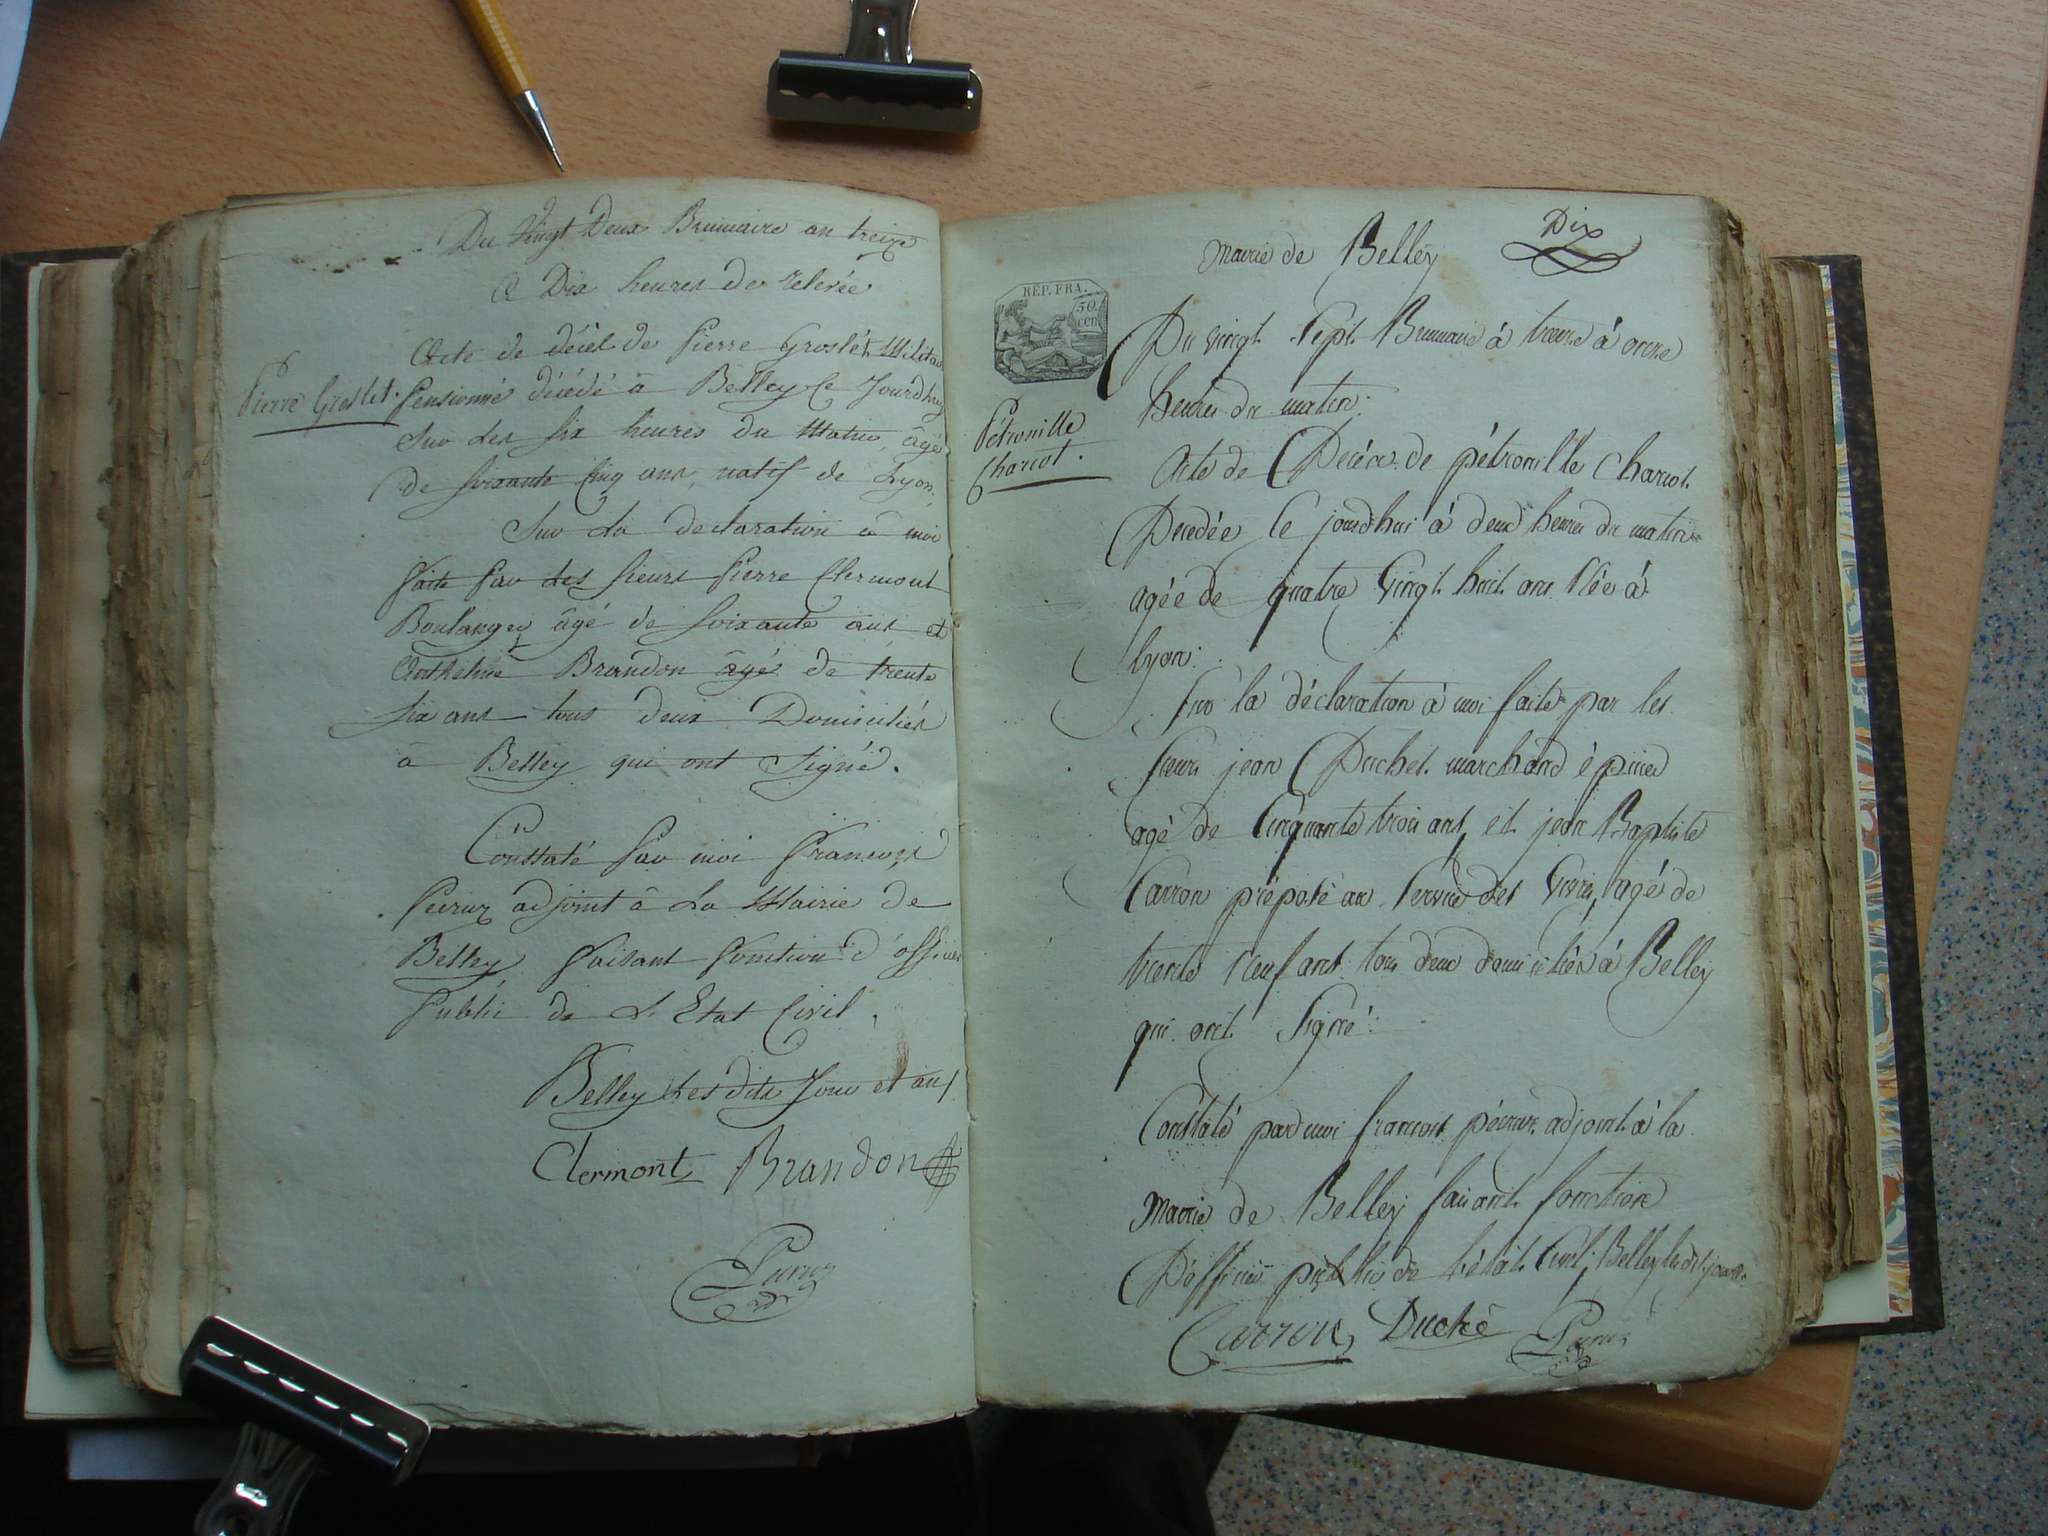 Du Vingt Deux Brumaire an treize
a Dix heures de relevée
Acte de décès de Pierre Groslet Militaire
Pierre Groslet.
Pensionné décédé à Belley Ce Jourdhuy
Sur les Six heures du Matin, âgé
de Soixante Cinq ans, natif de Lyon.
Sur La declaration à moi
faite par les Sieurs Pierre Clermont
Boulanger âgé de Soixante ans et
Anthelme Brandon âgé de trente
Six ans tous deux Domiciliés
à Belley qui ont Signé.
Constaté par moi François
adjoint à La Mairie de
Belley faisant fonction d'officier
Public de L'Etat Civil,
Belley Les dits Jour et an
Clermont Brandon
Mairie de Belley
Dix
RÉP. FRA.
50 cen
Du vingt Sept Brumaire à onze
heures du matin.
Pétronille
Charcot.
Acte de Décés de pétronille Charcot
Decedée Ce jourdhui à deux heures du matin
agée de quatre Vingt huit ans Née à
lyon.
Sur la déclaration à moi faite par les
Sieurs jean Duchet marchand épicier
agé de Cinquante trois ans et jean Baptiste
Carron préposé au Service des Vivres, agé de
trente Neuf ans tous deux domiciliés à Belley
qui ont Signé.
Constaté par moi françois adjoint à la
Mairie de Belley faisant fonction
D'officier public de l'état Civil, Belley lesdits jour
Carron Duché